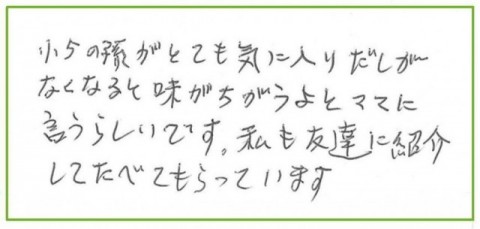 小5の孫がとても気に入りだしが
なくなると味がちがうよとママに
言うらしいです。私も友達に紹介
してたべてもらっています